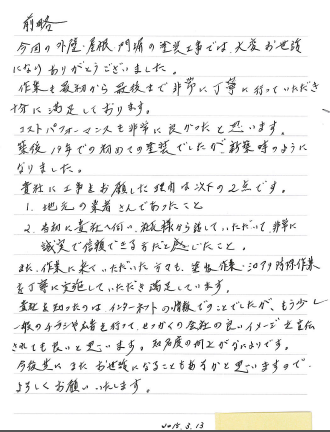 前略
今回の外壁・屋根・門塀の塗装工事では、大変お世話
になりありがとうございました。
作業も最初から最後まで非常に丁寧に行っていただき
十分に満足しております。
コストパフォーマンスも非常に良かったと思います。
築後19年での初めての塗装でしたが新築時のように
なりました。
貴社に工事をお願いした理由は以下の2点です。
1. 地元の業者さんであったこと
2. 当初に貴社へ伺い、社長様から話していただいて、非常に
誠実で信頼できる方だと感じたこと。
また、作業に来ていただいた方々も、塗装作業・シロアリ防除作業
を丁寧に実施していただき満足しています。
貴社を知ったのは、インターネットの情報でのことでしたが、もう少し
一般のチラシや広告を行って、せっかくの会社の良いイメージを宣伝
されても良いと思います。知名度の向上がなによりです。
今後先にまたお世話になることもあるかと思いますので、
よろしくお願いいたします。
2015.3.13